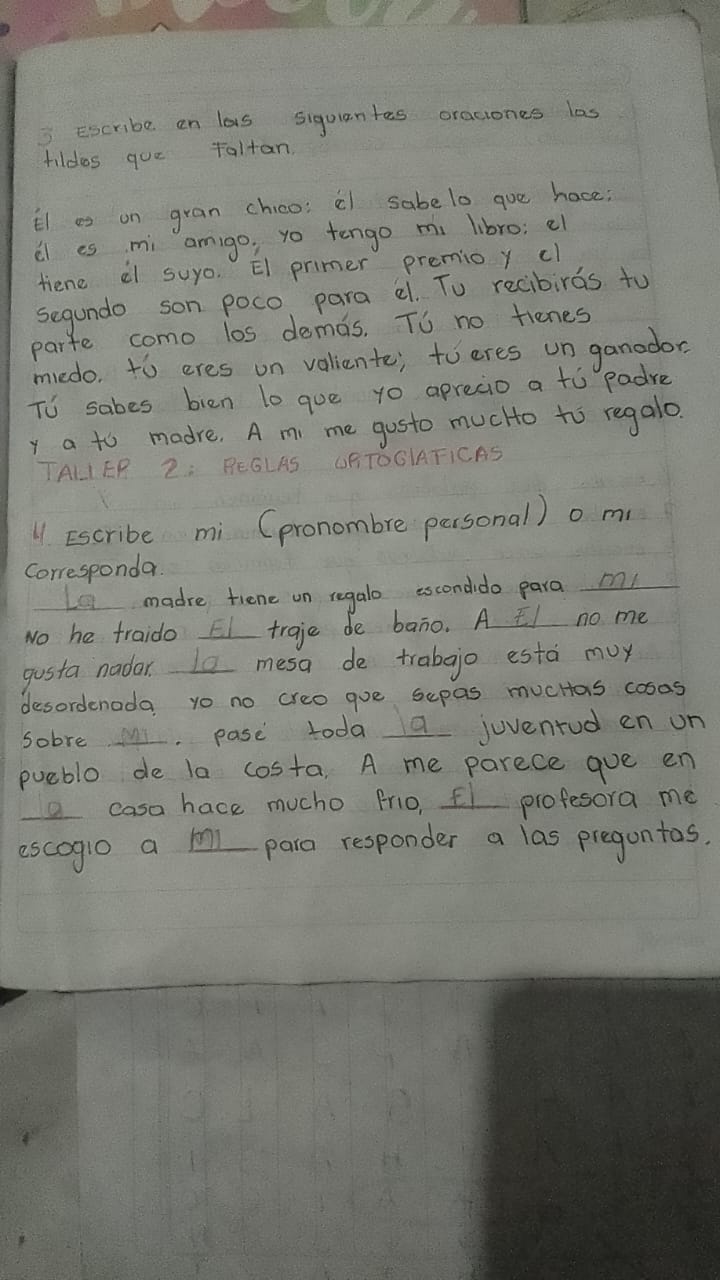 3 Escribe en las siguientes oraciones las
tildes que Faltan.
Él es un gran chico: él sabe lo que hace;
él es mi amigo, yo tengo mi libro; el
tiene él suyo. Él primer premio y el
segundo son poco para él. Tu recibirás tu
parte como los demás. Tú no tienes
miedo. tú eres un valiente; tú eres un ganador.
Tú sabes bien lo que yo aprecio a tú padre
y a tú madre. A mi me gusto mucHo tú regalo.
TALLER 2: REGLAS ORTOGIAFICAS
4 Escribe mi (pronombre personal) o mi
Corresponda.
La madre tiene un regalo escondido para mi
No he traido El traje de baño. A El no me
gusta nadar. la mesa de trabajo está muy
desordenada yo no creo que sepas mucHas cosas
sobre mi. pasé toda la juventud en un
pueblo de la costa. A me parece que en
la casa hace mucho frio, El profesora me
escogio a mi para responder a las preguntas.